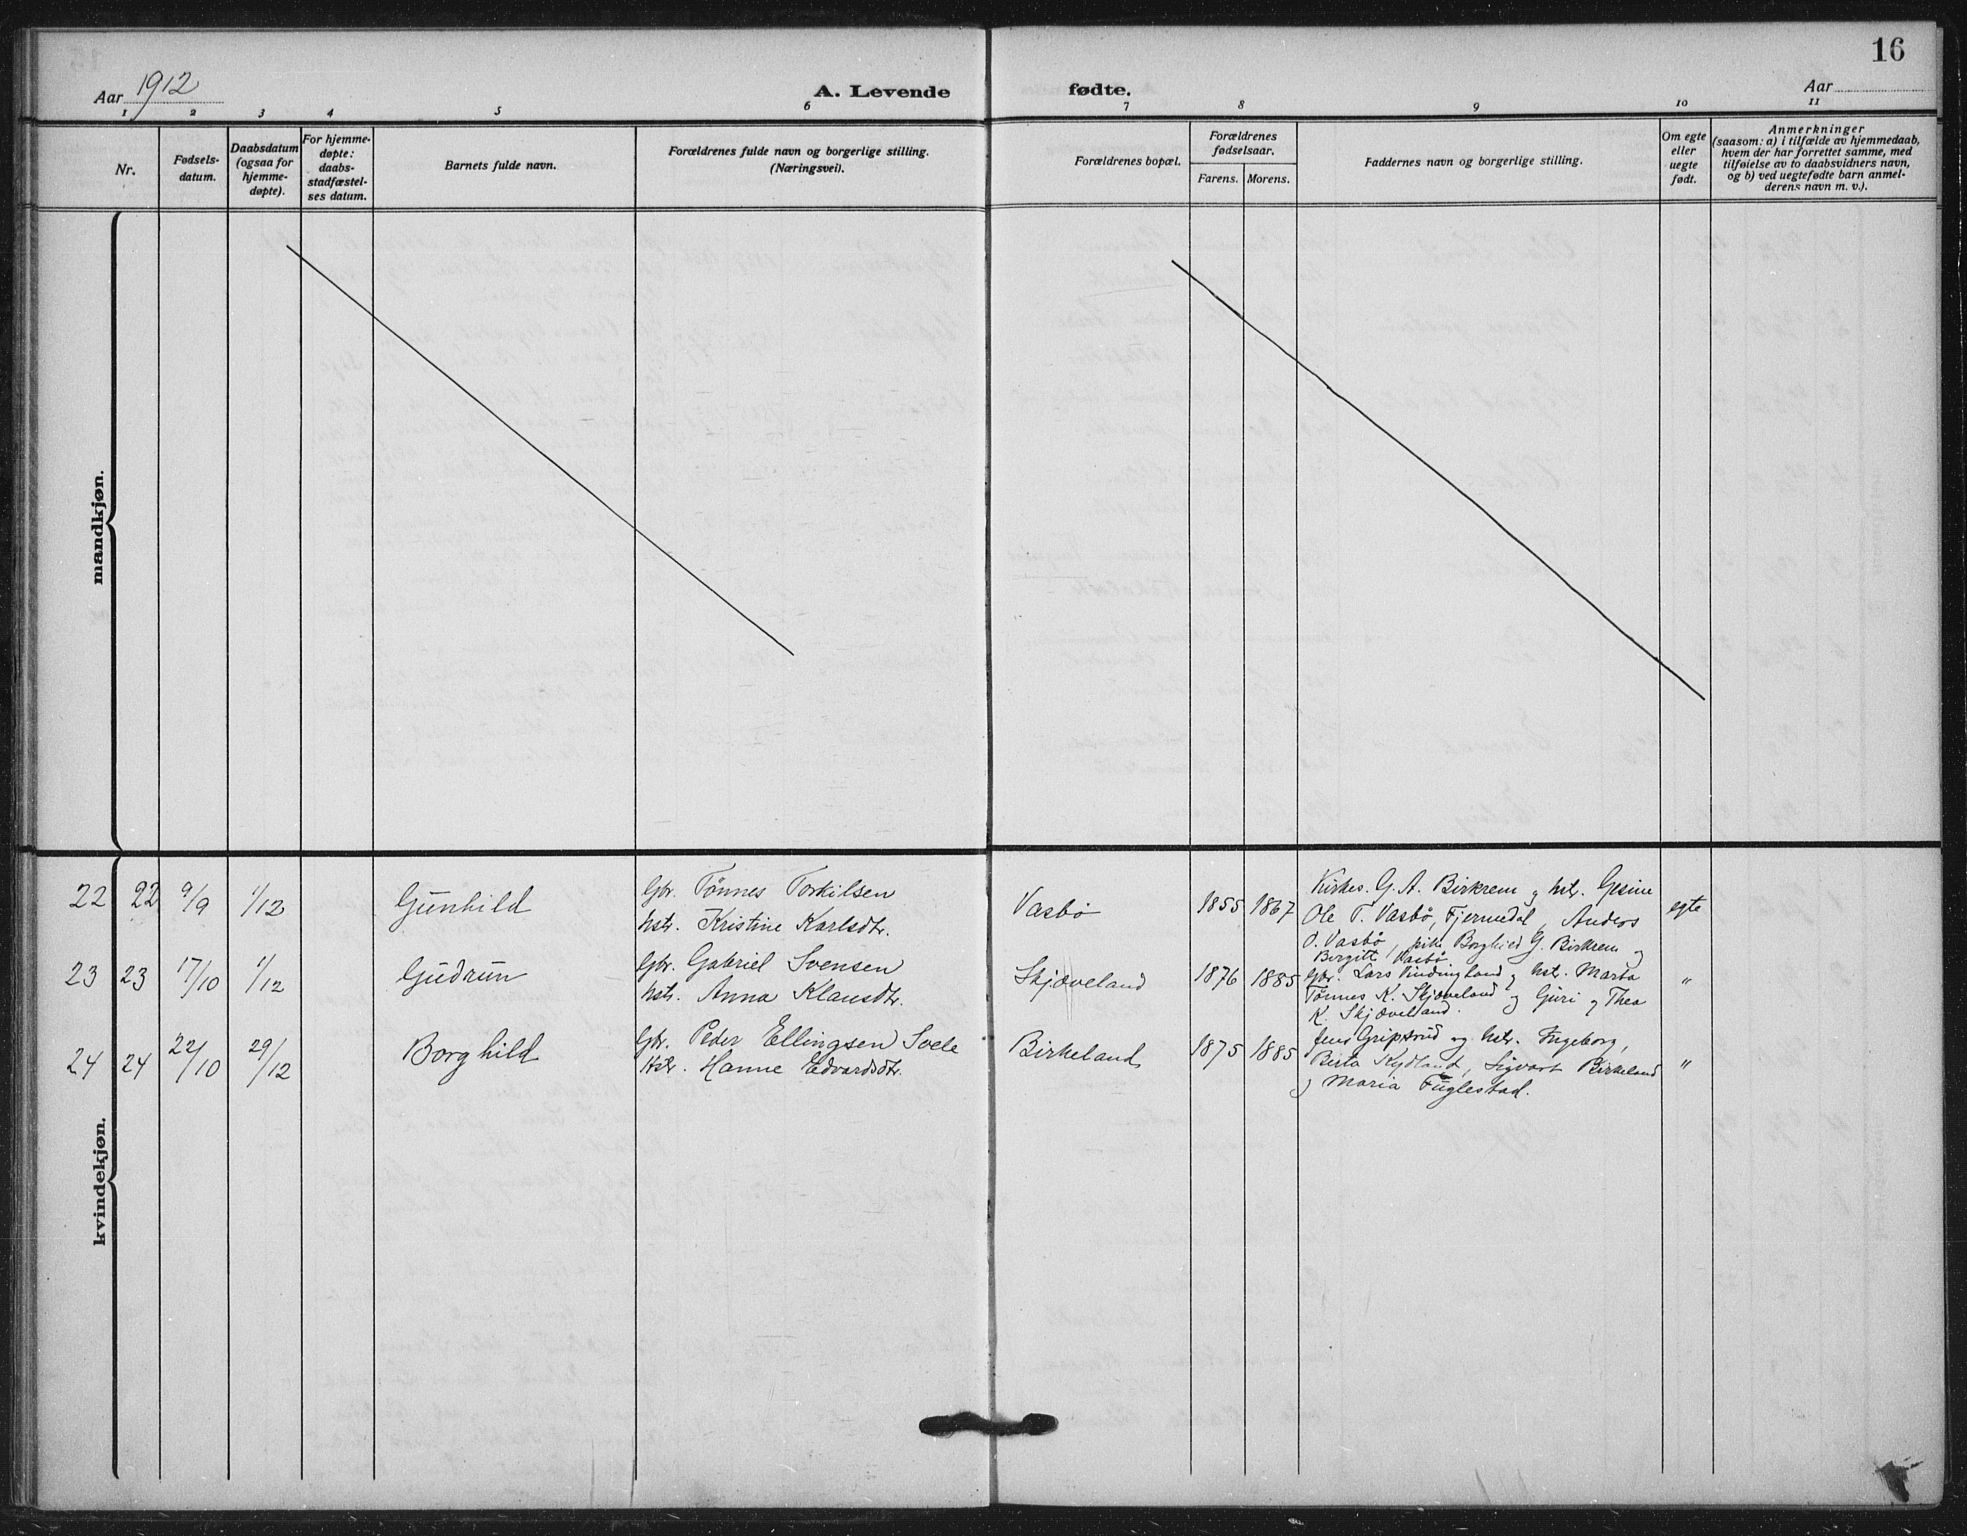 16
Aar 1912
A. Levende fødte.
Aar
1 2 3 4 5 6 7 8 9 10 11
Nr.
Fødsels-
datum.
Daabsdatum
(ogsaa for
hjemme-
døpte).
For hjemme-
døpte:
daabs-
stadfæstel-
ses datum.
Barnets fulde navn.
Forældrenes fulde navn og borgerlige stilling.
(Næringsvei).
Forældrenes bopæl.
Forældrenes
fødselsaar.
Farens. Morens.
Faddernes navn og borgerlige stilling.
Om egte
eller
uegte
født.
Anmerkninger
(saasom: a) i tilfælde av hjemmedaab,
hvem der har forrettet samme, med
tilføielse av to daabsvidners navn,
og b) ved uegtefødte barn anmel-
derens navn m. v.).
mandkjøn.
22 22 9/9 1/12 Gunhild
Gbr. Tønnes Torkilsen
hstr. Kristine Karlsdtr.
Vasbø 1855 1867
Kirkes. G. A. Birkrem og hstr. Gesine
Ole T. Vasbø, Fjermedal, Anders
O. Vasbø, pike Borghild G. Birkrem og
Birgitte Vasbø
egte
23 23 17/10 1/12 Gudrun
Gbr. Gabriel Svensen
hstr. Anna Klausdtr.
Skjæveland 1876 1885
Gbr. Lars Vindingland og hstr. Marta
Tønnes K. Skjæveland og Guri og Thea
K. Skjæveland.
"
24 24 22/10 29/12 Borghild
Gbr. Peder Ellingsen Svele
Hstr. Hanne Edvardsdtr.
Birkeland 1875 1885
Jens Gripsrud og hstr. Ingeborg,
Berta Kydland, Sigvart Birkeland
og Maria Fuglestad.
"
kvindekjøn.